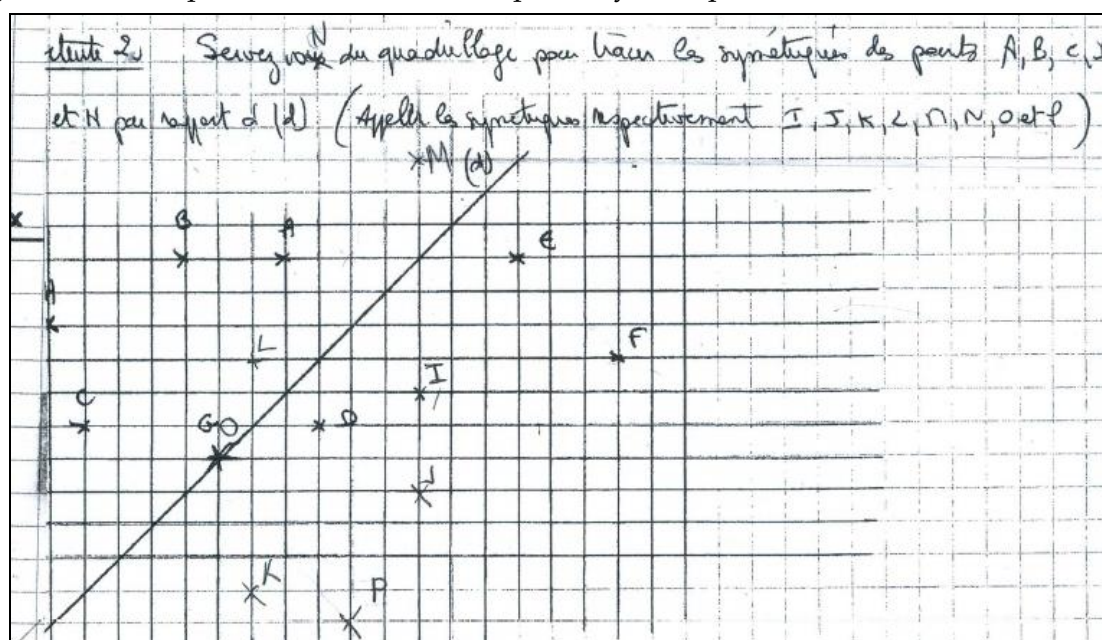 N
Servez vous du quadrillage pour tracer les symétriques des points A, B, C,
et H par rapport à (d) (Appeler les symétriques respectivement I, J, K, L, M, N, O et P)
M (d)
B A E
H
L F
C I
G O D
J
K P